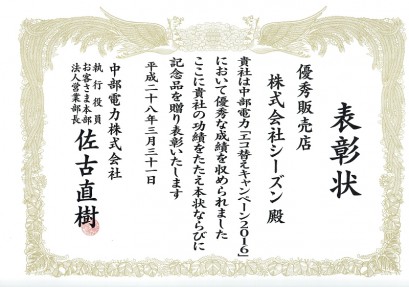 表彰状
優秀販売店
株式会社シーズン殿
貴社は中部電力「エコ替えキャンペーン2016」
において優秀な成績を収められました
ここに貴社の功績をたたえ本状ならびに
記念品を贈り表彰いたします
平成二十八年三月三十一日
中部電力株式会社
執行役員
お客さま本部
法人営業部長
佐古直樹